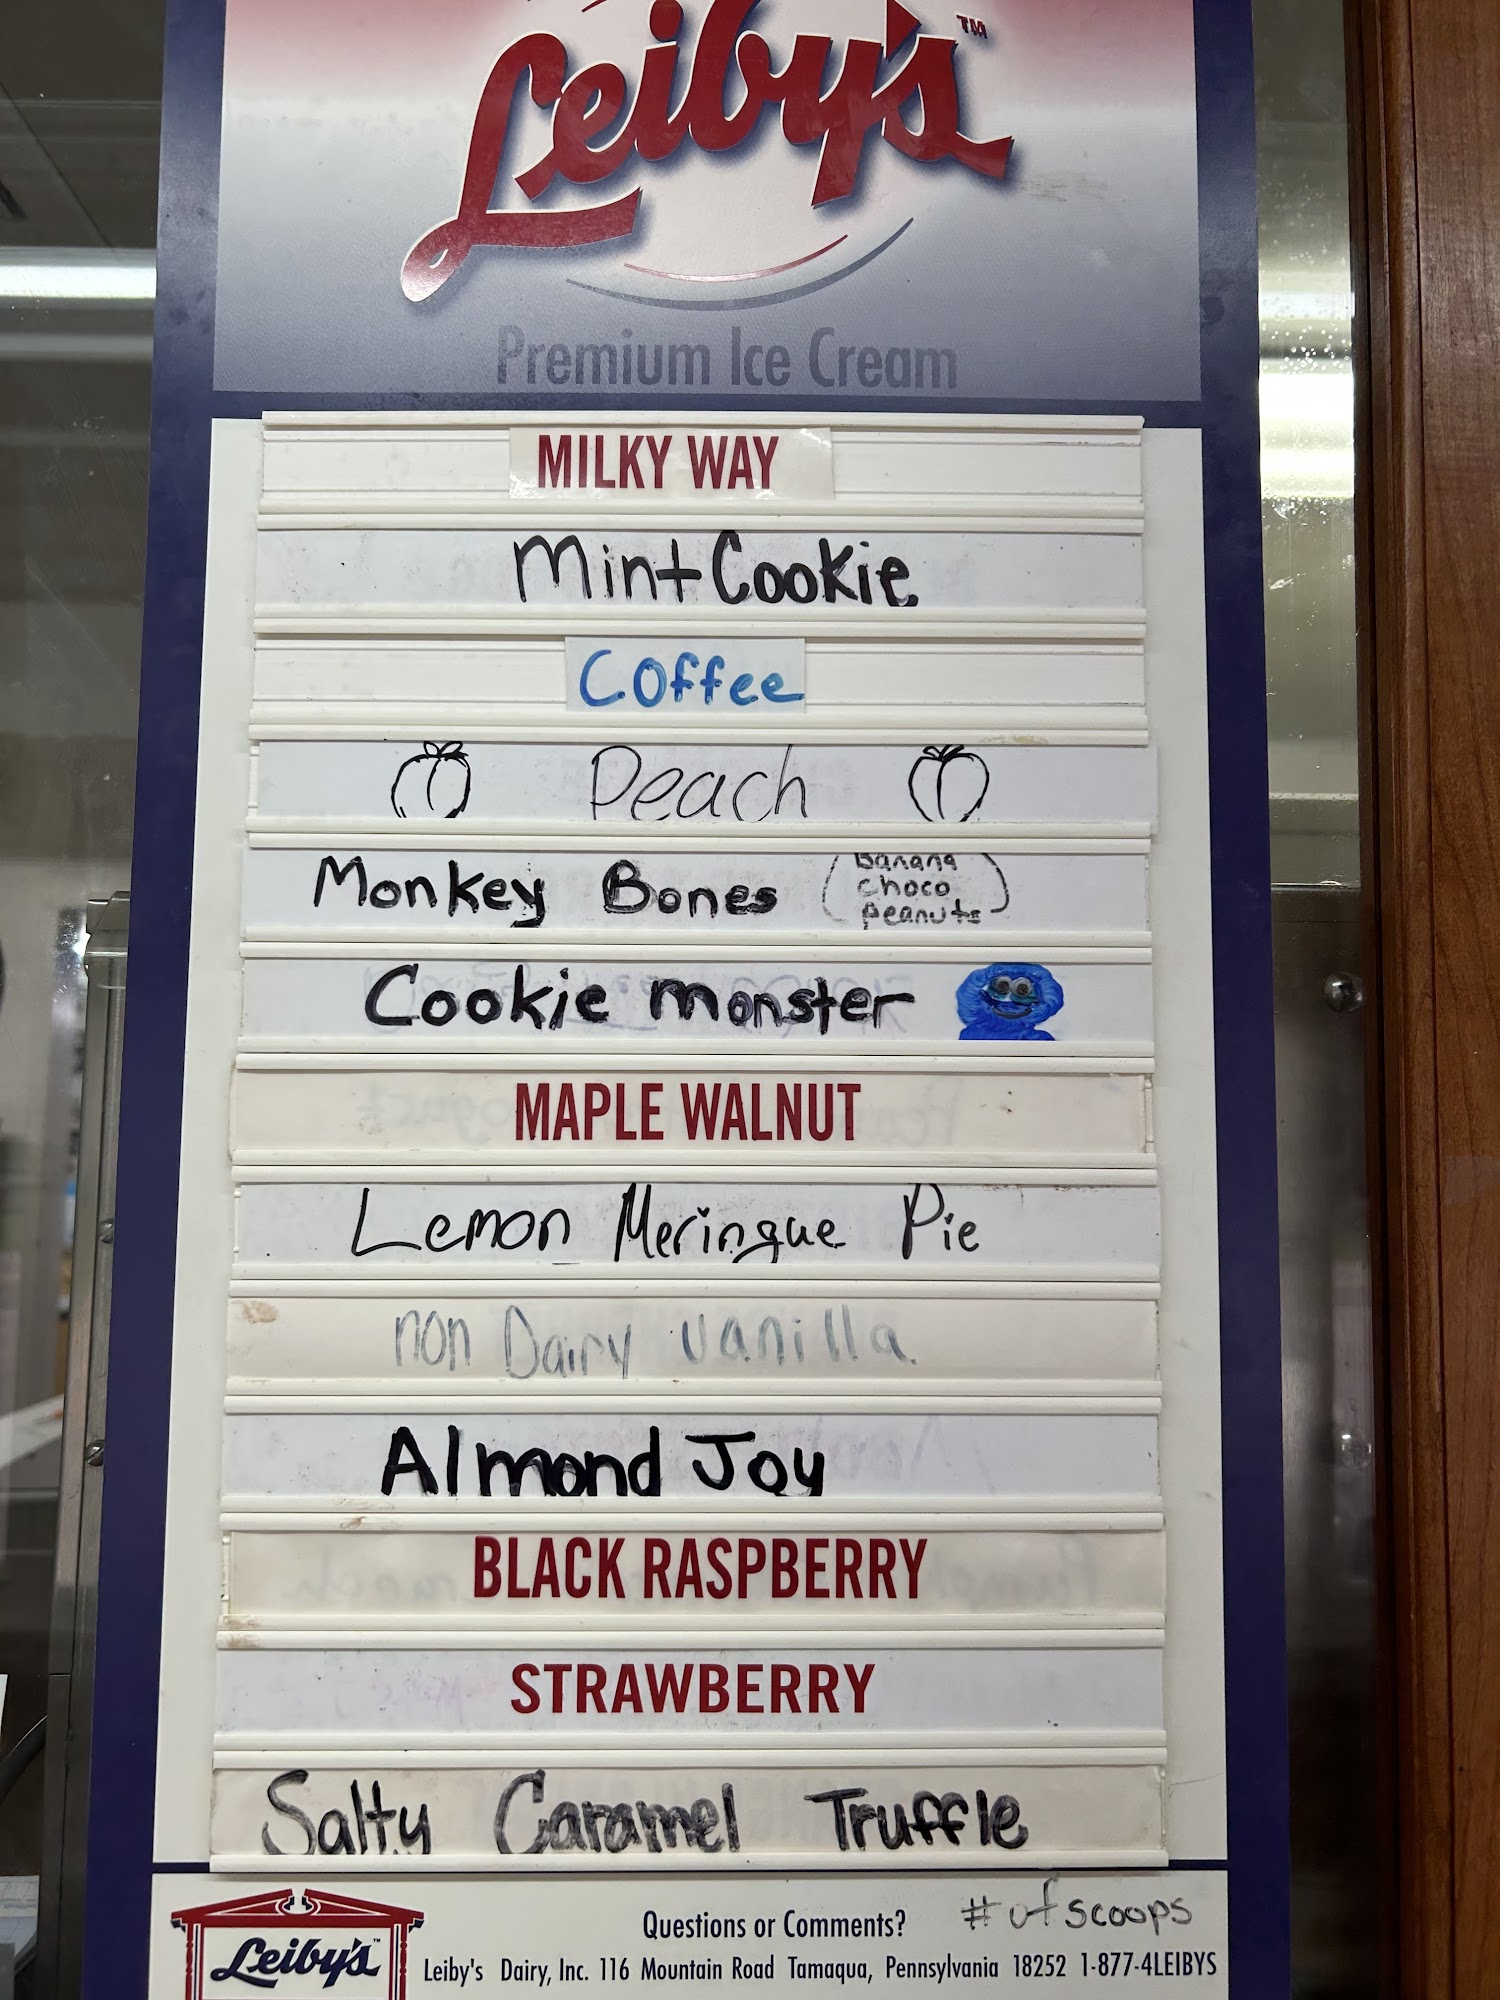 Leiby's™
Premium Ice Cream
MILKY WAY
Mint Cookie
Coffee
Peach
Monkey Bones (banana
choco
peanuts)
Cookie monster
MAPLE WALNUT
Lemon Meringue Pie
non Dairy vanilla
Almond Joy
BLACK RASPBERRY
STRAWBERRY
Salty Caramel Truffle
Questions or Comments? #ofscoops
Leiby's™
Leiby's Dairy, Inc. 116 Mountain Road Tamaqua, Pennsylvania 18252 1-877-4LEIBYS